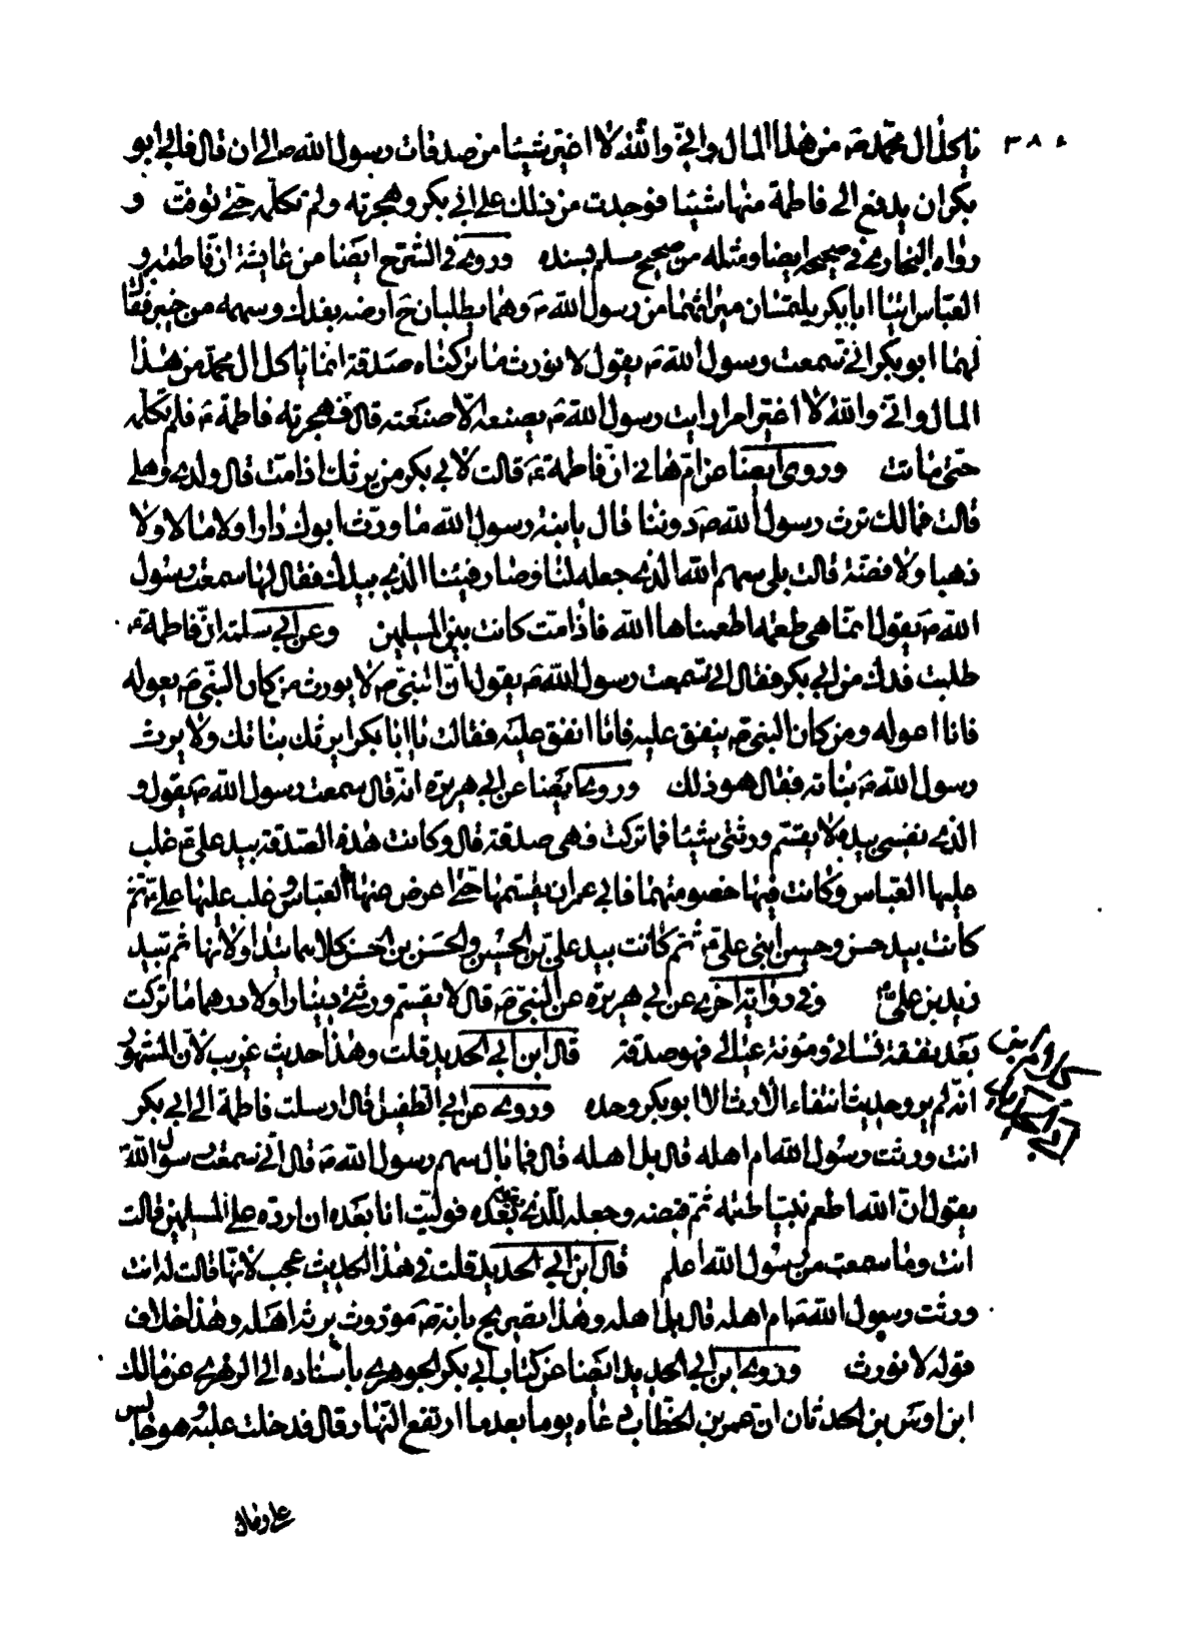 ٣٨٤
ياكل ال محمد ص من هذا المال واني والله لا اغير شيئا من صدقات رسول الله ص الى ان قال فابى ابو
بكر ان يدفع الى فاطمة منها شيئا فوجدت من ذلك على ابي بكر وهجرته ولم تكلمه حتى توفت و
رواه البخاري في صحيحه ايضا ومثله من صحيح مسلم بسنده وروى في الشرح ايضا من عايشة ان فاطمة و
العباس اتيا ابا بكر يلتمسان ميراثهما من رسول الله ص وهما يطلبان ح ارضه بفدك وسهمه من خيبر فقال
لهما ابو بكر اني سمعت رسول الله ص يقول لا نورث ما تركناه صدقة انما ياكل ال محمد من هذا
المال واني والله لا اغير امرا رايت رسول الله ص يصنعه الا صنعته قال فهجرته فاطمة ع فلم تكلمه
حتى ماتت وروى ايضا عن ام هاني ان فاطمة ع قالت لابي بكر من يرثك اذا مت قال ولدي واهلي
قالت فمالك ترث رسول الله ص دوننا قال يا بنة رسول الله ما ورث ابوك دارا ولا مالا ولا
ذهبا ولا فضة قالت بلى سهم الله الذي جعله لنا وصار فيئنا الذي بيدك فقال لها سمعت رسول
الله ص يقول انما هي طعمة اطعمناها الله فاذا مت كانت بين المسلمين وعن ابي سلمة ان فاطمة ع
طلبت فدك من ابي بكر فقال اني سمعت رسول الله ص يقول ان النبي ص لا يورث من كان النبي ص يعوله
فانا اعوله ومن كان النبي ص ينفق عليه فانا انفق عليه فقالت يا ابا بكر ايرثك بناتك ولا يرث
رسول الله ص بناته فقال هو ذلك وروى ايضا عن ابي هريرة انه قال سمعت رسول الله ص يقول و
الذي نفسي بيده لا يقتسم ورثتي شيئا ما تركت فهي صدقة قال وكانت هذه الصدقة بيد علي ع غلب
عليها العباس وكانت فيها خصومتهما فابى عمر ان يقسمها حتى اعرض عنها العباس وغلب عليها علي ع ثم
كانت بيد حسن وحسين ابني علي ع ثم كانت بيد علي بن الحسين والحسن بن الحسن كلاهما يتداولانها ثم بيد
زيد بن علي وفي رواية اخرى عن ابي هريرة عن النبي ص قال لا يقتسم ورثتي دينارا ولا درهما ما تركت
بعد نفقة نسائي ومئونة عيالي فهو صدقة قال ابن ابي الحديد قلت وهذا حديث غريب لان المشهور
انه لم يرو حديث انتفاء الارث الا ابو بكر وحده وروى عن ابي الطفيل قال ارسلت فاطمة الى ابي بكر
انت ورثت رسول الله ام اهله قال بل اهله قال فما بال سهم رسول الله ص قال اني سمعت رسول الله ص
يقول ان الله اطعم نبيا طعمة ثم قبضه وجعله للذي يقوم بعده فوليت انا بعده ان ارده على المسلمين قالت
انت وما سمعت من رسول الله اعلم قال ابن ابي الحديد قلت في هذا الحديث عجب لانها قالت له انت
ورثت رسول الله ص ام اهله قال بل اهله وهذا تصريح بانه ص موروث يرثه اهله وهذا خلاف
قوله لا نورث وروى ابن ابي الحديد ايضا عن كتاب ابي بكر الجوهري باسناده الى الزهري عن مالك
ابن اوس بن الحدثان ان عمر بن الخطاب دعاه يوما بعد ما ارتفع النهار قال فدخلت عليه وهو جالس
على رمال